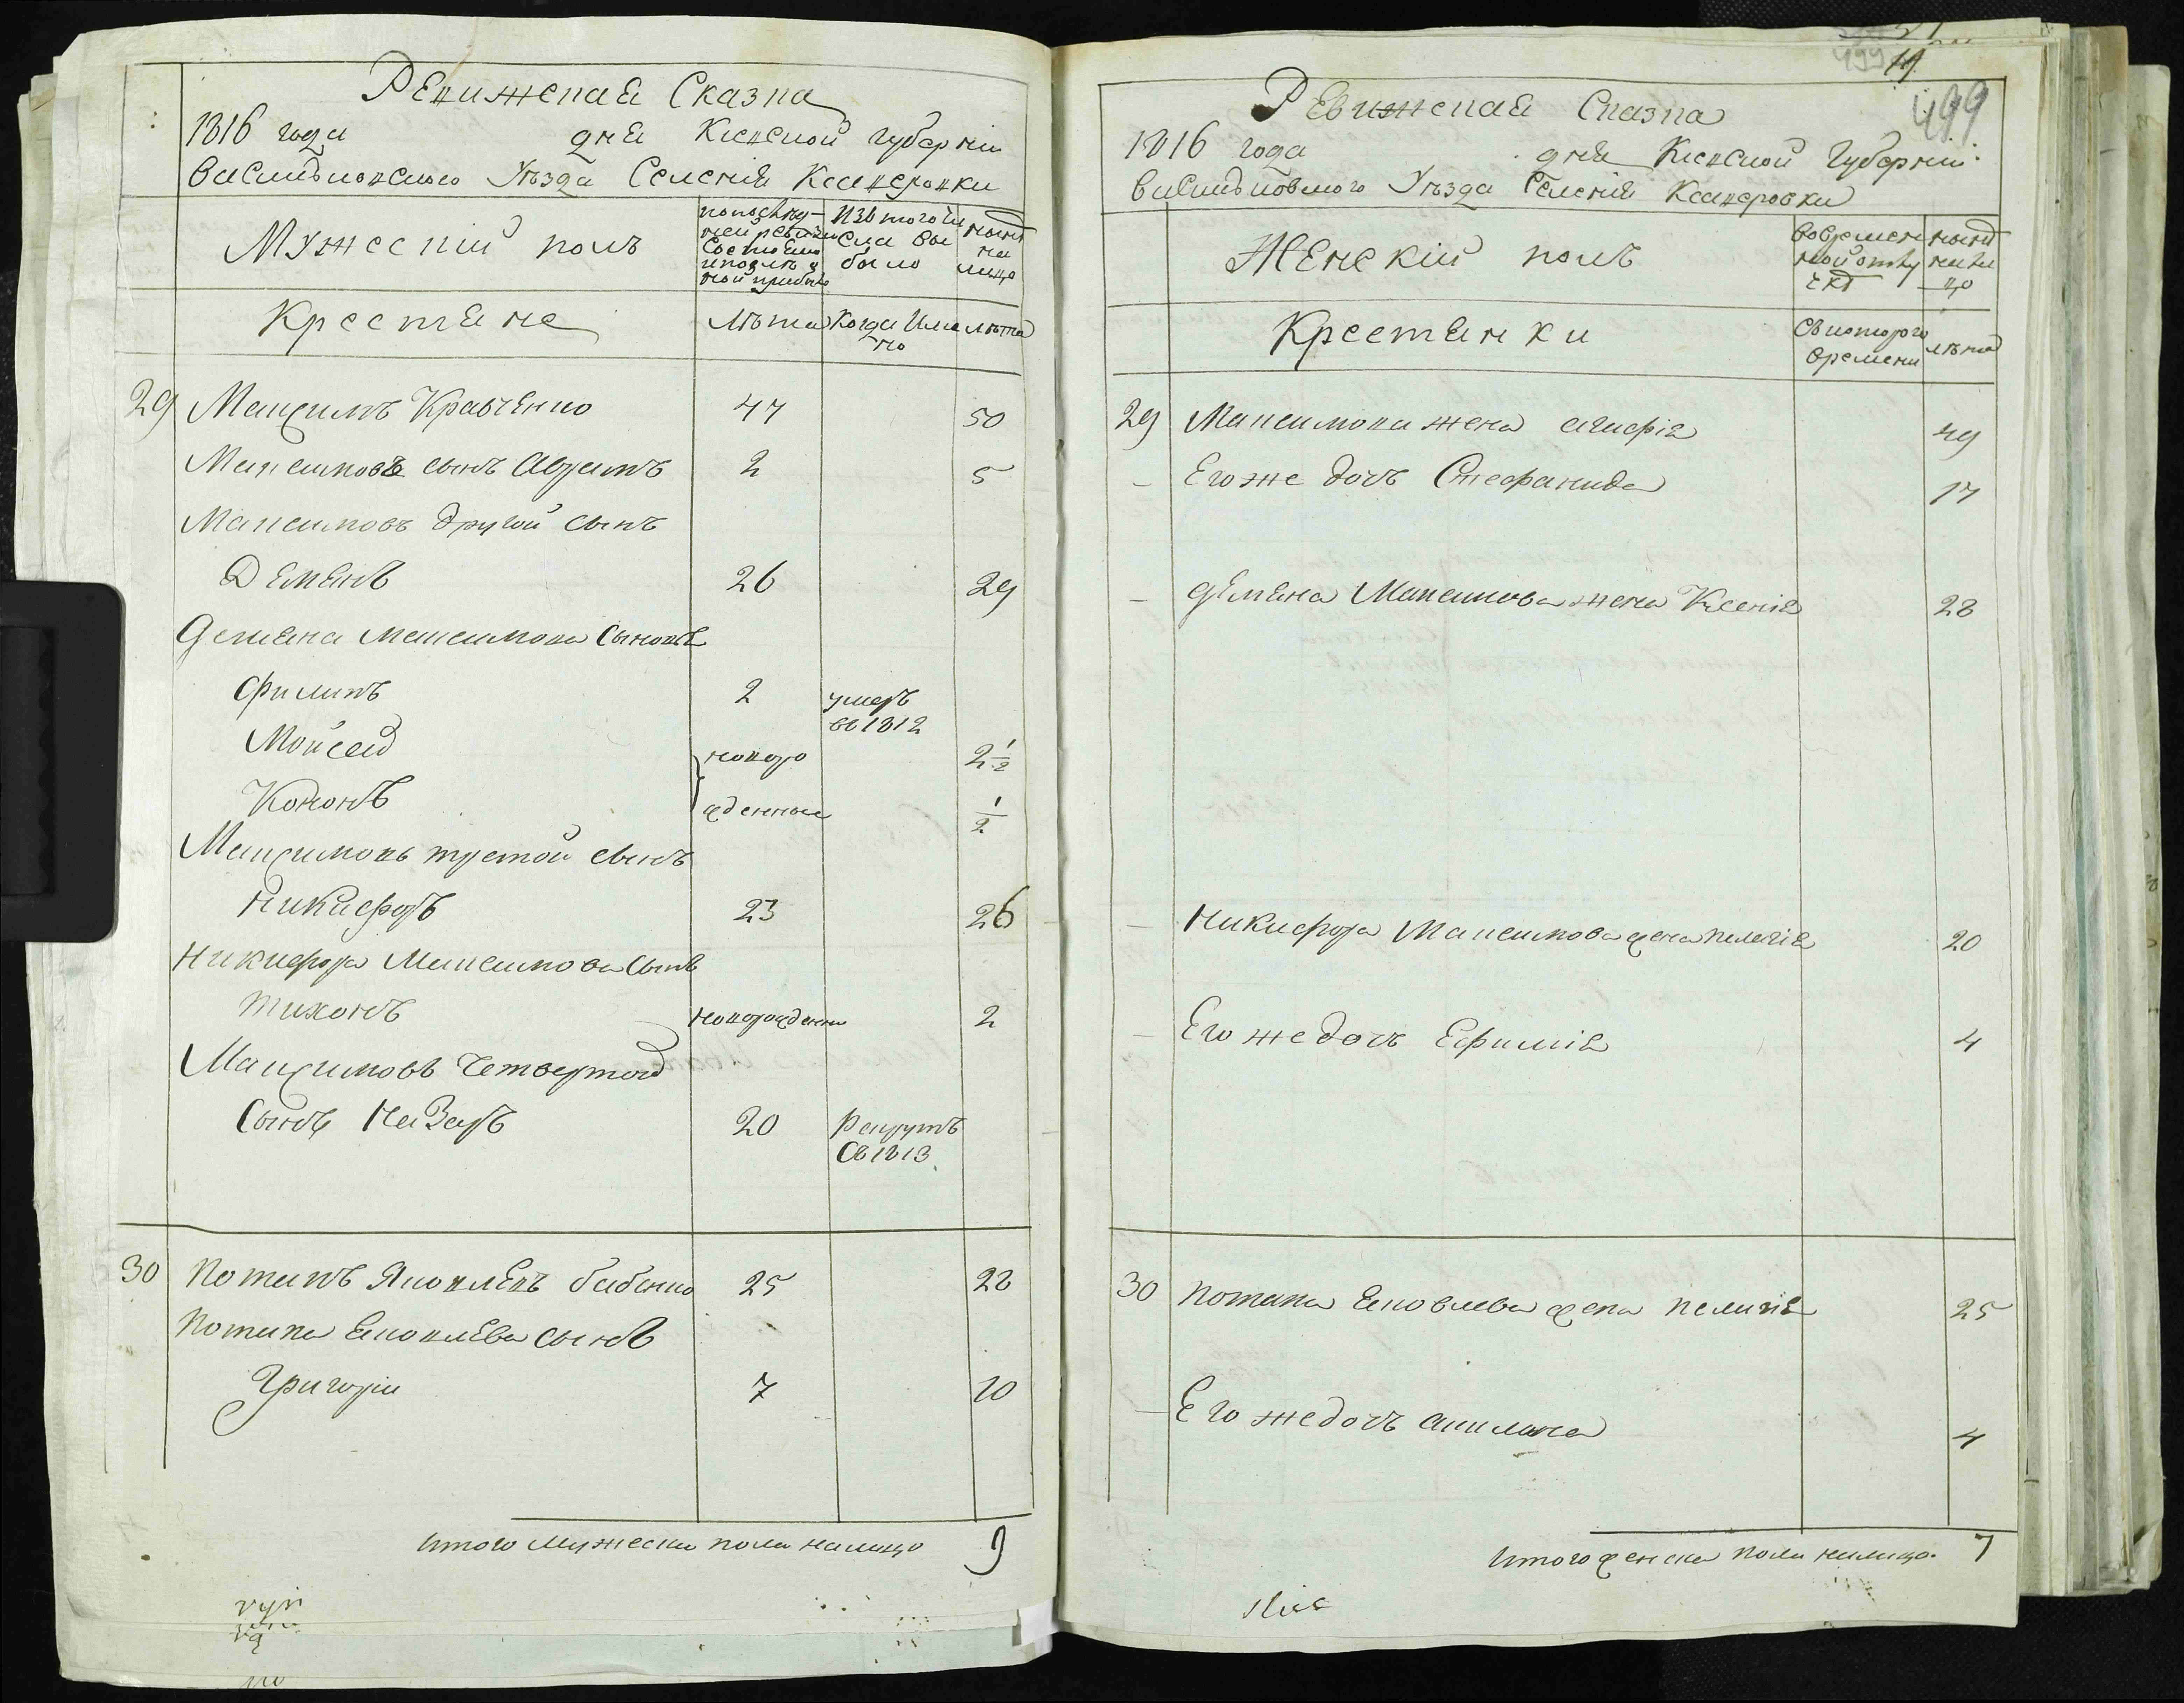 Ревижская Сказка
1816 года дня Киевской губерніи
Васильковского Уѣзда Селенія Ксаверовки
Мужескій полъ
попослед-
ней ревизіи
состояло
и послѣ
оной прибыло
Изъ того чи
сла вы
было
нынѣ
на
лицо
Крестяне
Лѣта
Когда Име
но
лѣта
29 Максимъ Кравченко 47 50
Максимовъ сынъ Абрамъ 2 5
Максимовъ другой сынъ
Демянъ 26 29
Демяна Максимова сыновья
Филипъ 2 умеръ
въ 1812
Мойсей новоро 2 1/2
Кононъ жденные 1/2
Максимовъ третой сынъ
Никифоръ 23 26
Никифора Максимова сынъ
Тихонъ новорожденны 2
Максимовъ четвертой
Сынъ Назаръ 20 Рекрутъ
Съ 1813
30 Потапъ Яковлевъ бабенко 25 28
Потапа Яковлева сынъ
Григорій 7 10
Итого мужеска пола налицо 9
499
19
499
Ревижская Сказка
1816 года дня Киевской Губерніи
Васильковского Уѣзда Селенія Ксаверовки
Женскій полъ
вовремен
ной отлу
чкѣ
нынѣ
нали
цо
Крестянки
Съ которого
времени
лѣта
29 Максимова жена Агафія 49
Его же дочь Стефанида 17
Демяна Максимова жена Ксенія 28
Никифора Максимова жена Пелагія 20
Его же дочь Ефимія 4
30 Потапа Яковлева жена Пелагія 25
Его же дочь Акилина 4
Итого женска пола налицо. 7